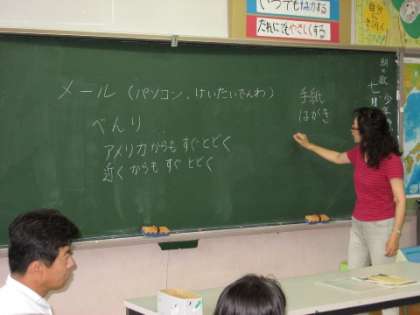 いつでも
だれにでもやさしくする
メール(パソコン、けいたいでんわ)
べんり
アメリカからもすぐとどく
近くからもすぐとどく
手紙
はがき